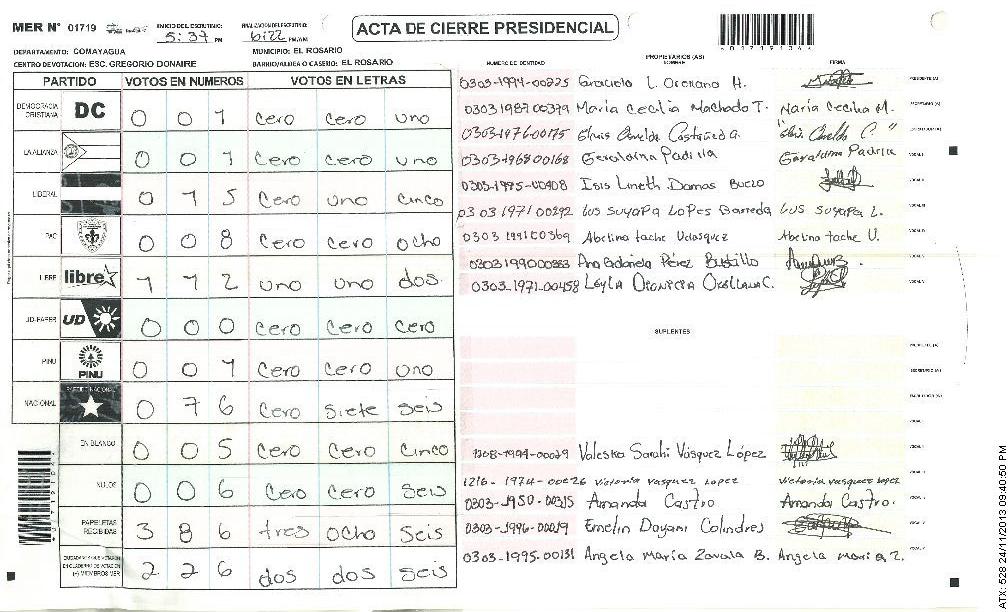 MER N° 01719 INICIO DEL ESCRUTINIO: 5:37 PM FINALIZACION DEL ESCRUTINIO: 6:22 PM/AM ACTA DE CIERRE PRESIDENCIAL
DEPARTAMENTO: COMAYAGUA MUNICIPIO: EL ROSARIO
CENTRO DE VOTACION: ESC. GREGORIO DONAIRE BARRIO/ALDEA O CASERIO: EL ROSARIO
PARTIDO VOTOS EN NUMEROS VOTOS EN LETRAS
DEMOCRACIA CRISTIANA DC 0 0 1 cero cero uno
LA ALIANZA 0 0 1 cero cero uno
LIBERAL 0 1 5 cero uno cinco
PAC 0 0 8 cero cero ocho
LIBRE libre 1 1 2 uno uno dos
UD-FAPER UD 0 0 0 cero cero cero
PINU PINU 0 0 1 cero cero uno
NACIONAL PARTIDO NACIONAL 0 7 6 cero siete seis
EN BLANCO 0 0 5 cero cero cinco
NULOS 0 0 6 cero cero seis
PAPELETAS RECIBIDAS 3 8 6 tres ocho seis
CIUDADANOS QUE VOTARON EN CUADERNO DE VOTACION (+) MIEMBROS MER 2 2 6 dos dos seis
PROPIETARIOS (AS)
NUMERO DE IDENTIDAD NOMBRE FIRMA
0303-1994-00225 Graciela L. Orellano H. PRESIDENTE (A)
0303 1987 00379 Maria Cecilia Machado T. Maria Cecilia M. SECRETARIO (A)
0303-1976-00175
0303-1968 00168 Geraldina Padilla Geraldina Padilla
0303-1995-00408 Isis Lineth Damas
0303 1971 00292 Lus Suyapa Lopes Lus Suyapa L.
0303 1991 00369 Abelina tache Velasquez Abelina tache V.
0303-1990 00383 Ana Gabriela Pérez Bustillo
0303-1971-00458 Leyla Dionicia Orellana C.
SUPLENTES
1208-1994-00029 Valeska Sarahi Vásquez López
1216-1974-00026 Victoria Vasquez Lopez Victoria Vasquez Lopez
0303-1950-00315 Amanda Castro Amanda Castro.
0303-1996-00019 Emelin Dayani Colindres
0303-1995-00131 Angela María Zavala B. Angela Maria Z.
ATX: 528 24/11/2013 09:40:50 PM